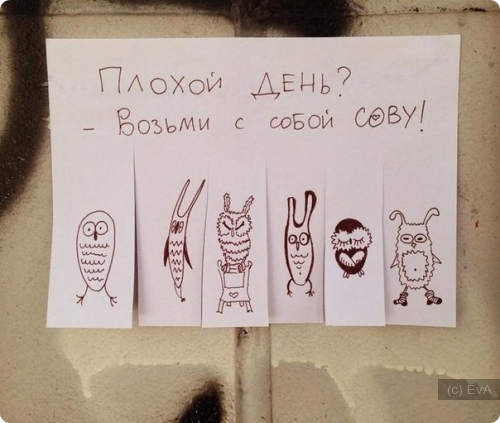 Плохой день?
- Возьми с собой СОВУ!
(c) EvA